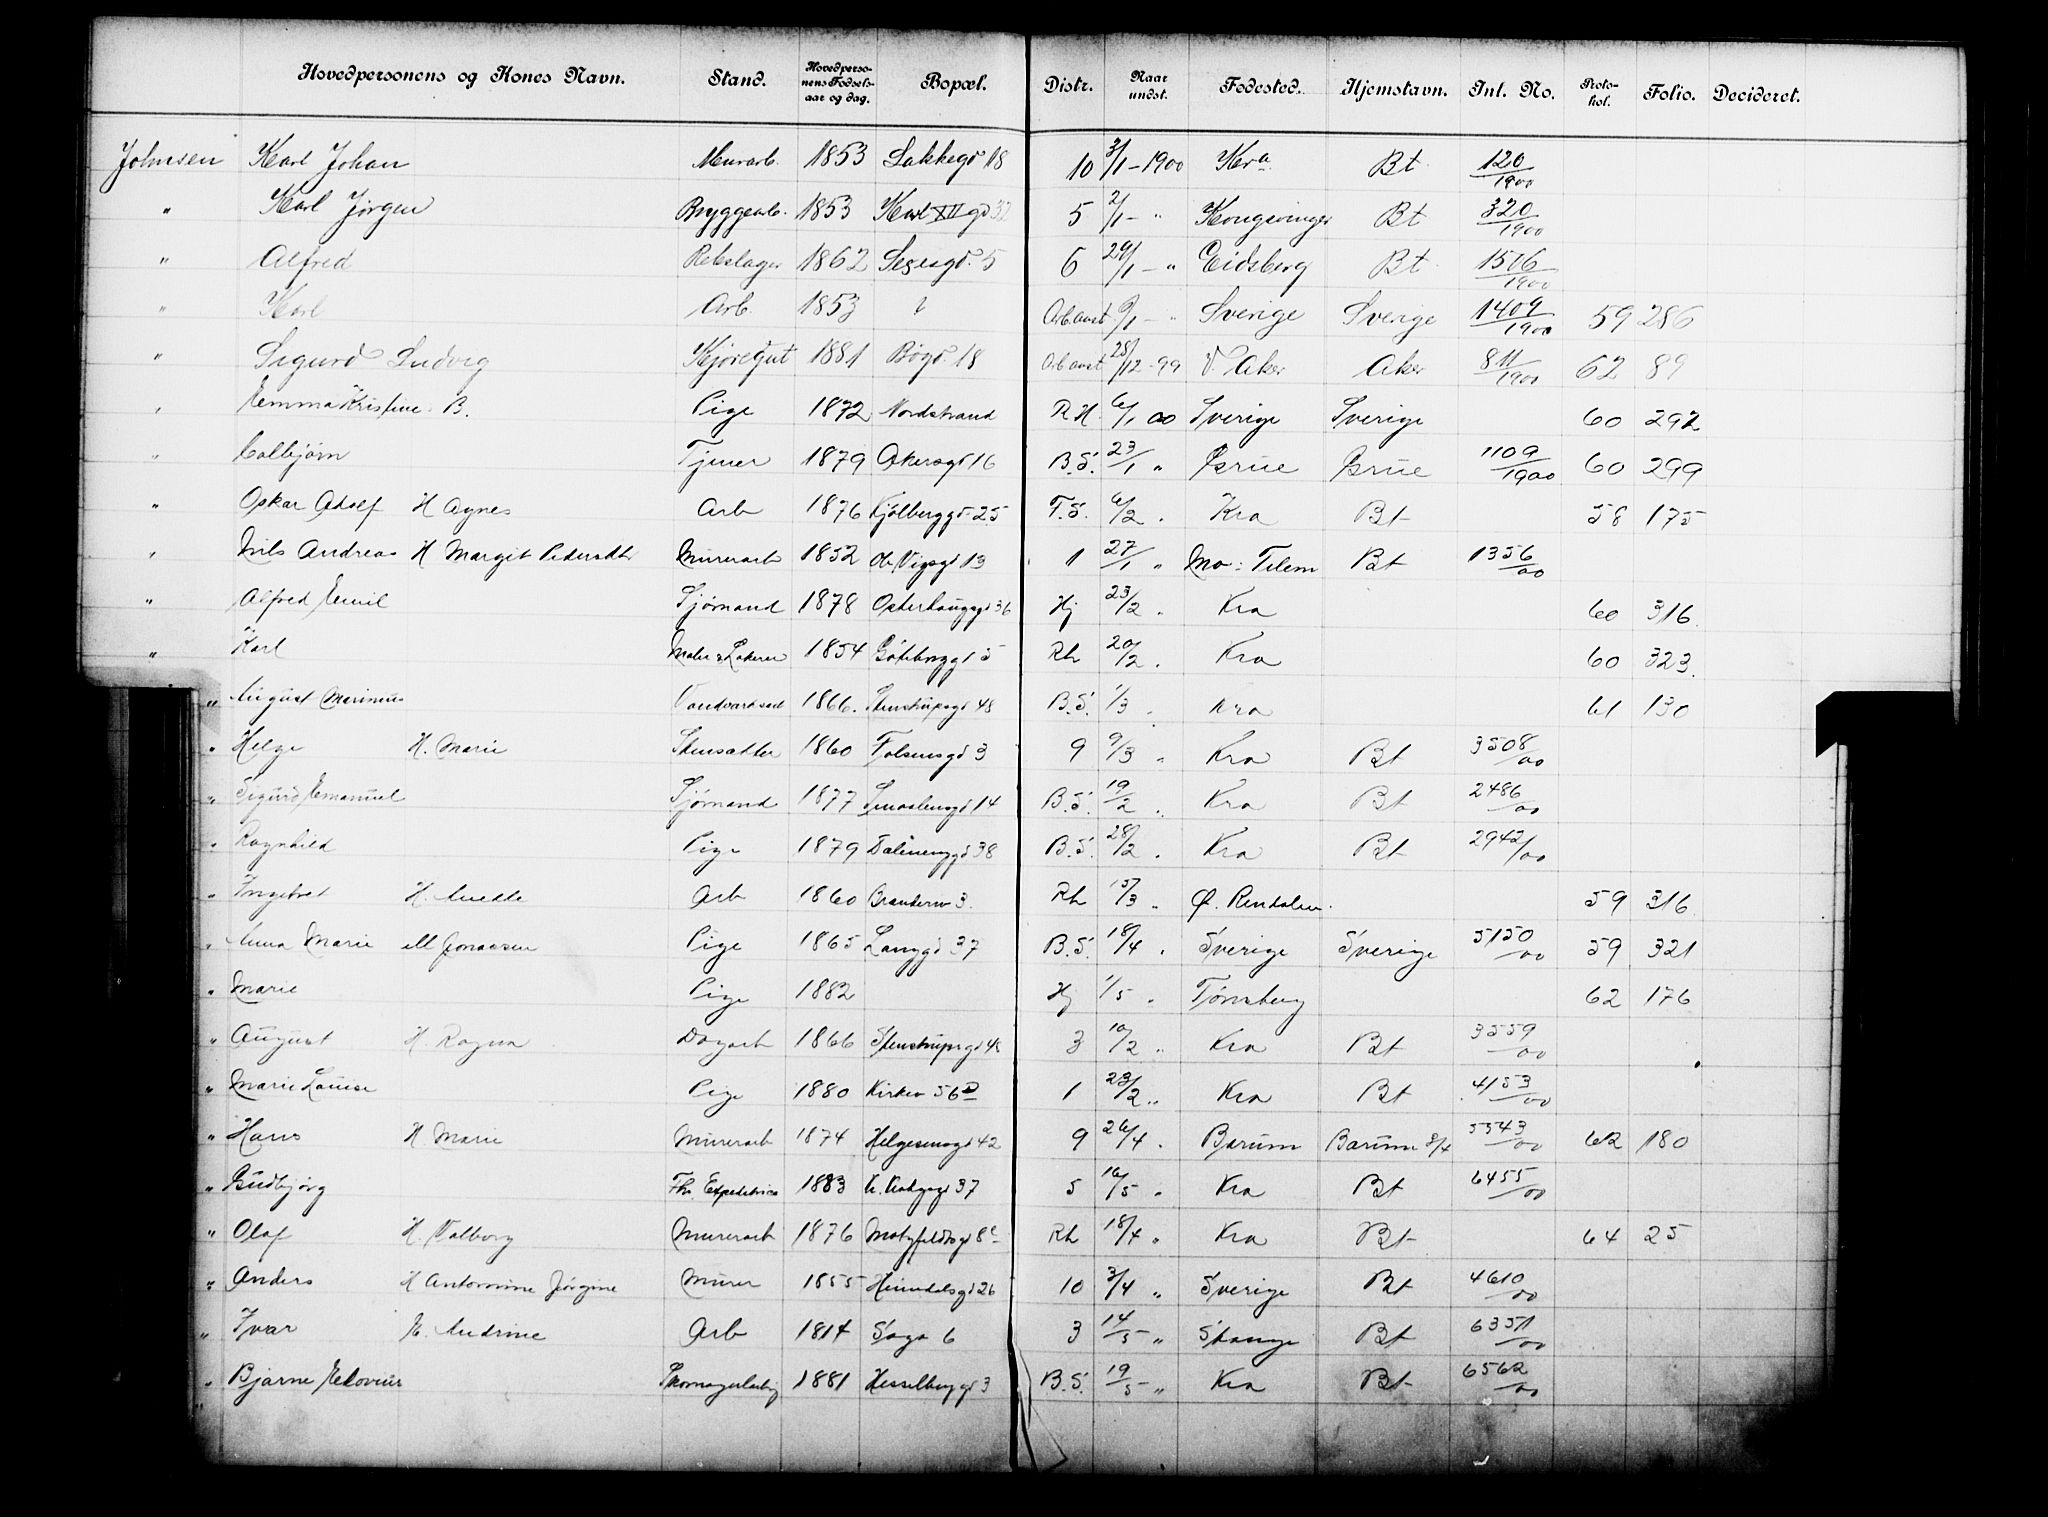 Hovedpersonens og Kones Navn. Stand. Hovedpersonens Fødselsaar og dag. Bopæl. Distr. Naar undst. Fødested. Hjemstavn. Int. No. Protokol. Folio. Decideret.
Johnsen Karl Johan Murarb. 1853 Lakkegd 18 10 3/1 - 1900 Kra. Bt. 120/1900
" Karl Jørgen Bryggearb. 1853 Karl XII gd 32 5 2/1 - " Kongsvinger Bt 320/1900
" Alfred Rebslager 1862 5 6 29/1 - " Eidsberg Bt 1506/1900
" Karl Arb. 1853 Arb.anst. 9/1 - " Sverige Sverige 1409/1900 59 286
" Sigurd Ludvig Kjøregut 1881 Bøgd. 18 Arb.anst 28/12 - 99 V. Aker Aker 811/1900 62 89
" Emma Kristine B. Pige 1872 Nordstrand R H. 6/1 00 Sverige Sverige 60 292
" Colbjørn Tjener 1879 Akersgd 16 B.S. 23/1 " Grue Grue 1109/1900 60 299
" Oskar Adolf H Agnes Arb 1876 Kjølberggd 25 T.S. 6/2 " Kra Bt 58 175
" Nils Andreas H Margit Pedersdtr Murerarb 1852 de Vigsgd 13 1 27/1 " Mo: Telem Bt 1356/00
" Alfred Emil Sjømand 1878 Osterhausgd 36 Hj 23/2 " Kra 60 316.
" Karl Maler & Lakerer 1854 Göteborggd 5 Rh 20/2 " Kra 60 323.
" August Marinius 1866. Stenstrupsgd 48 B.S. 1/3 " Kra 61 130
" Helge H. Marie Stensætter 1860 3 9 9/3 " Kra Bt 3508/00
" Sigurd Emanuel Sjømand 1877 Smaalensgd 14 B.S. 19/2 " Kra Bt 2486/00
" Ragnhild Pige 1879 Dælenenggd 38 B.S. 28/2 " Kra Bt 2942/00
" Ingebret H. Anette Arb 1860 3. Rh 15/3 " Ø. Rendalen. 59 316
" Anna Marie ell Jonassen Pige 1865 Langgd 37 B.S. 18/4 " Sverige Sverige 5150/00 59 321
" Marie Pige 1882 Hj 1/5 " Tønsberg 62 176
" August H. Ragna Dagarb 1866 Stenstrupsgd 48 3 10/2 " Kra Bt 3559/00
" Marie Louise Pige 1880 Kirkev 56 D 1 23/2 " Kra Bt 4153/00
" Hans H Marie Murerarb 1874 Helgesensgd 42 9 26/4 " Bærum Bærum 8/4 5543/00 62 180
" Gudbjørg Fhv. Expeditrice 1883 37 5 16/5 " Kra Bt 6455/00
" Olaf H. Valborg Murerarb 1876 Motzfeldtsgd 8 c Rh 18/4 " Kra Bt 64 25
" Anders H Antonine Jørgine Murer 1855 Heimdalsgd 26 10 3/4 " Sverige Bt 4610/00
" Ivar H. Andrine Arb 1814 Saga 6 3 14/5 " Stange Bt 6351/00
" Bjarne Skomagerlærling 1881 Hesselberggd 3 B.S. 19/5 " Kra Bt 6562/00